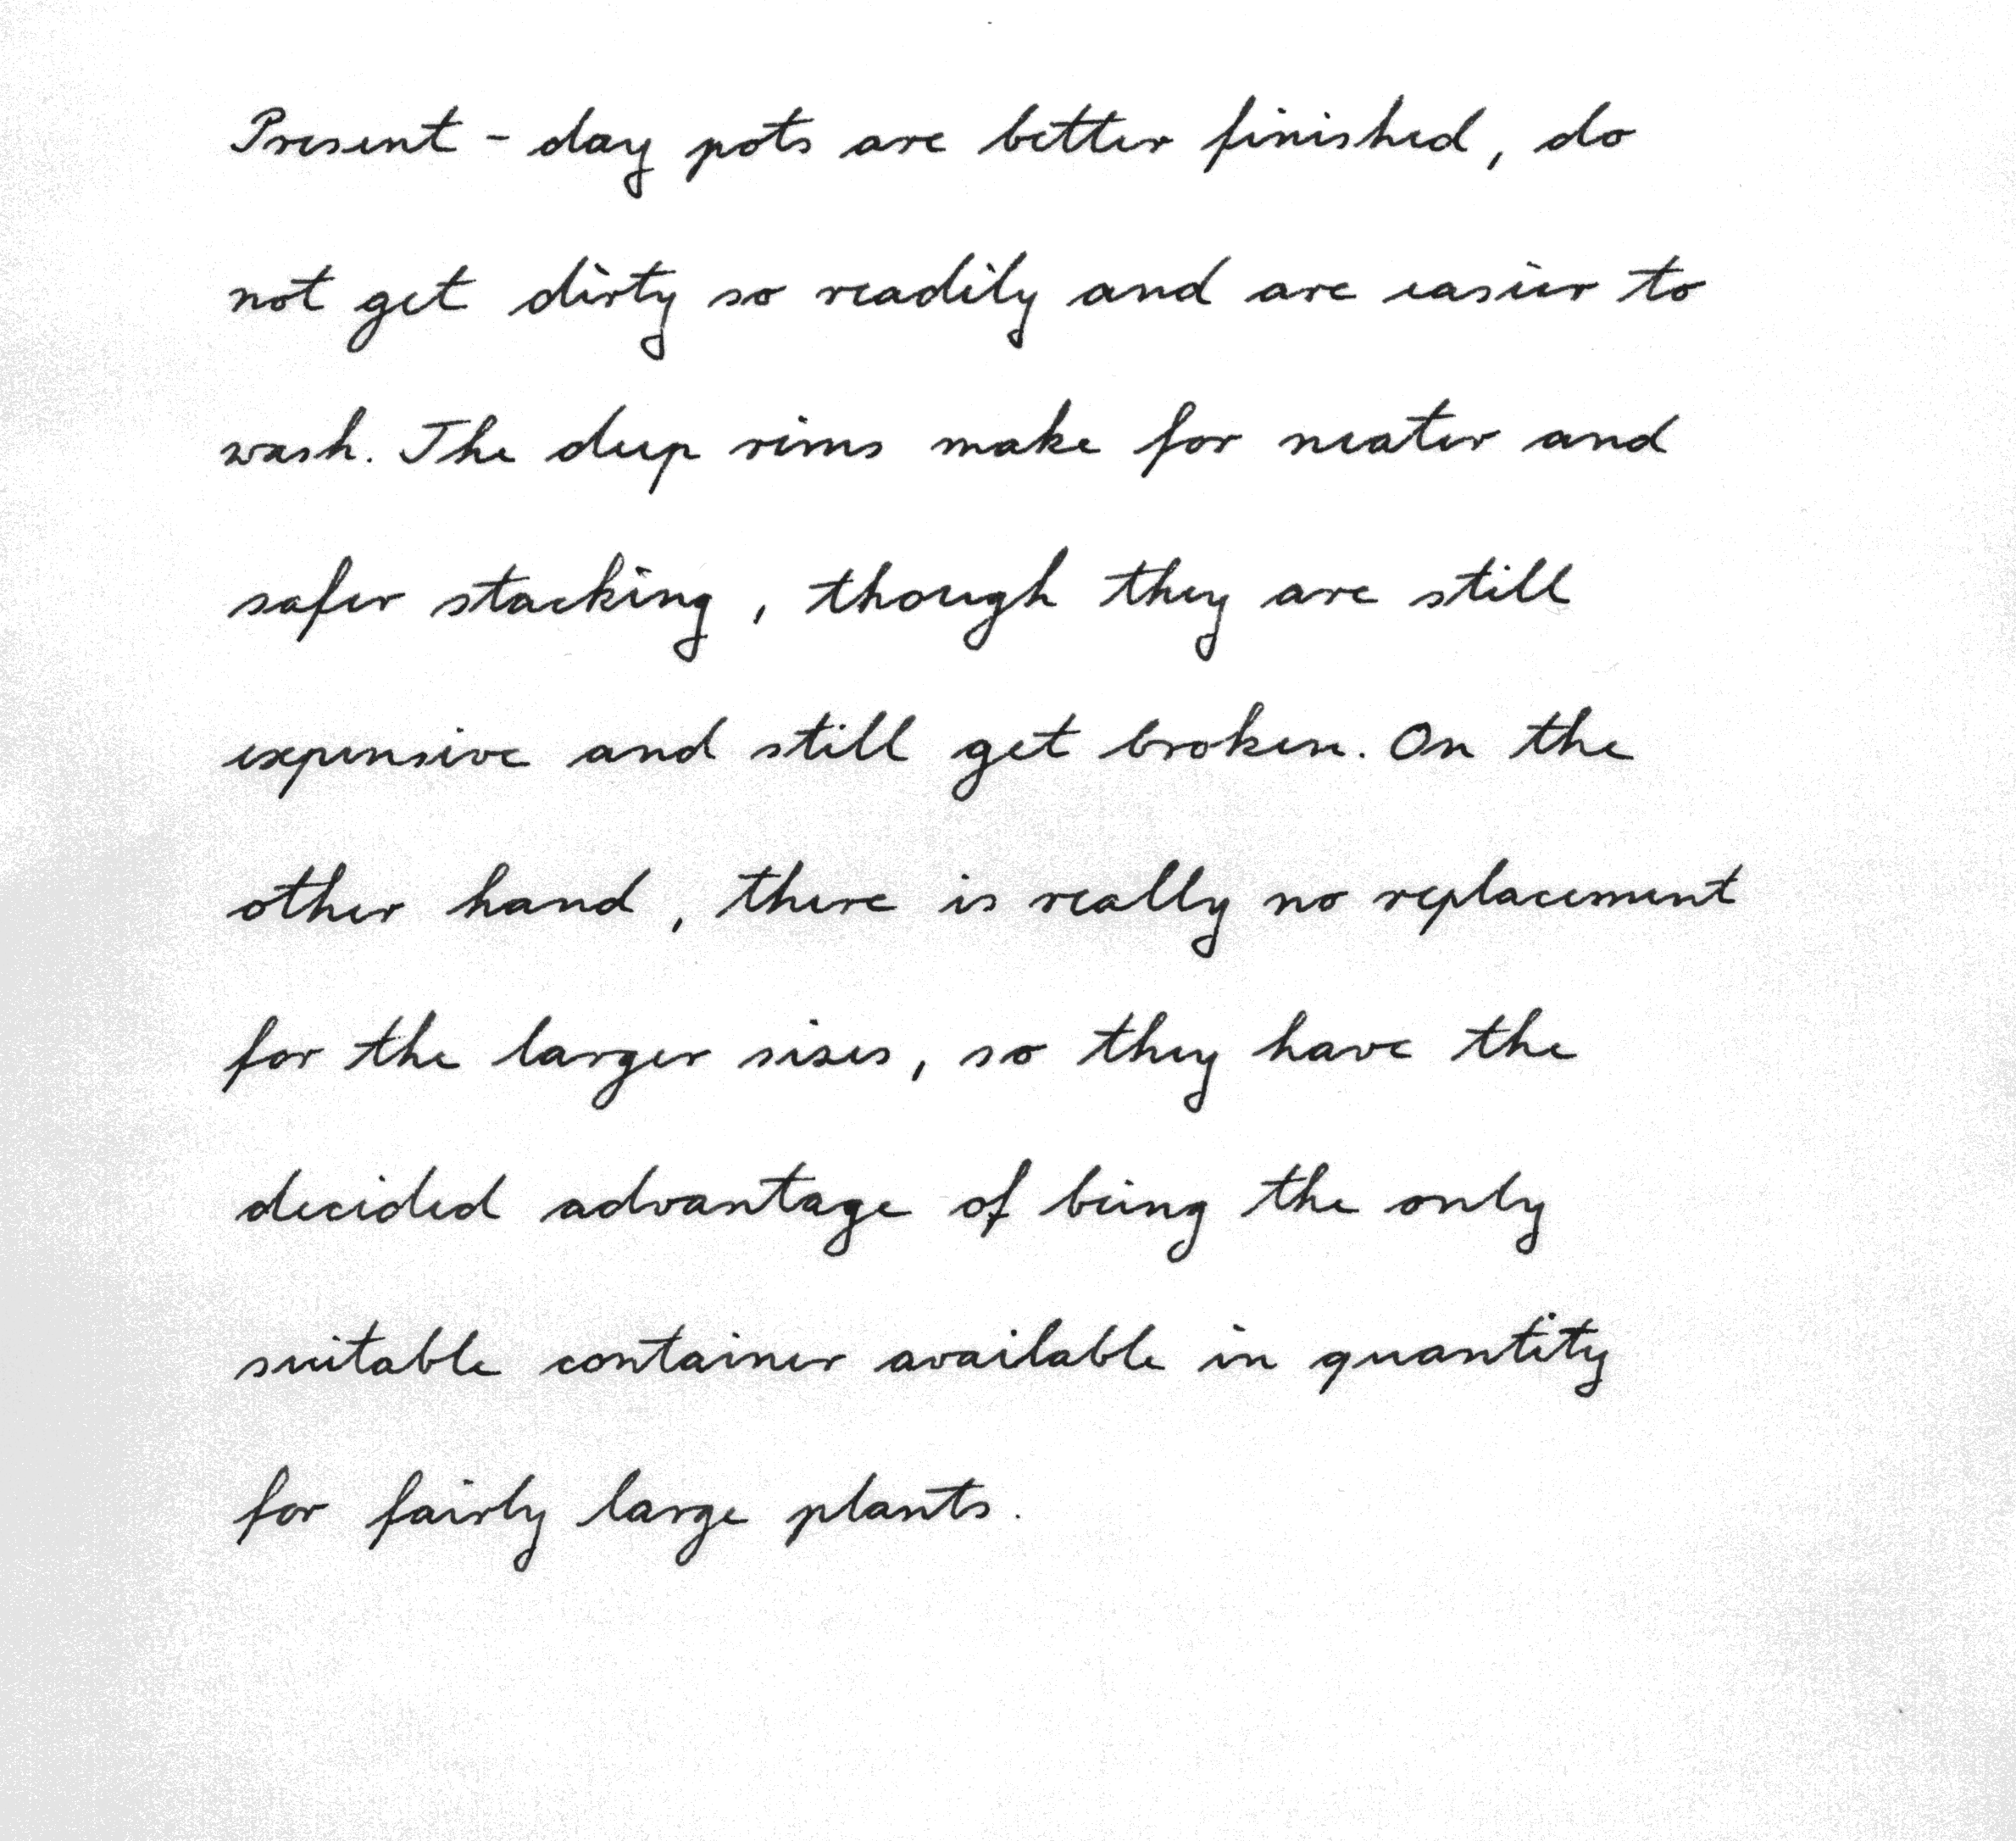 Present - day pots are better finished, do
not get dirty so readily and are easier to
wash. The deep rims make for neater and
safer stacking, though they are still
expensive and still get broken. On the
other hand, there is really no replacement
for the larger sises, so they have the
decided advantage of being the only
suitable container available in quantity
for fairly large plants.